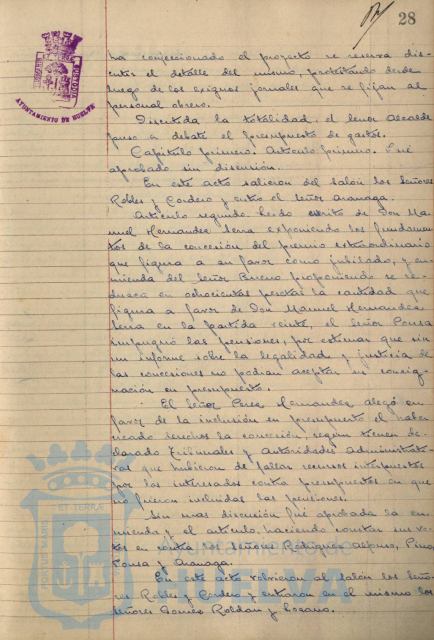 28
AYUNTAMIENTO DE HUELVA
ha confeccionado el proyecto se reserva dis-
cutir el detalle del mismo, protestando desde
luego de los exiguos jornales que se fijan al
personal obrero.
Discutida la totalidad, el señor Alcalde
puso a debate el presupuesto de gastos.
Capítulo primero. Artículo primero. Fué
aprobado sin discusión.
En este acto salieron del salón los Señores
Robles y Cordero y entró el señor Aranaga.
Artículo segundo. Leido escrito de Don Ma-
nuel Hernandez Serra exponiendo los fundamen-
tos de la concesión del premio extraordinario
que figura a su favor como jubilado, y en-
mienda del Señor Bueno proponiendo se re-
duzca en ochocientas pesetas la cantidad que
figura a favor de Don Manuel Hernandez
Serra en la partida veinte, el señor Ponsa
impugnó las pensiones, por estimar que sin
un informe sobre la legalidad y justicia de
las concesiones no podian aceptar su consig-
nación en presupuesto.
El Señor Perez Hernandez alegó en
favor de la inclusión en presupuesto el haber
creado derechos la concesión, según tienen de-
clarado Tribunales y Autoridades administrati-
vas que hubieron de fallar recursos interpuestos
por los interesados contra presupuestos en que
no fueron incluidas las pensiones.
Sin mas discusión fué aprobada la en-
mienda y el artículo, haciendo constar sus vo-
tos en contra los Señores Rodriguez Alfonso, Pino,
Ponsa y Aranaga.
En este acto volvieron al salón los Seño-
res Robles y Cordero y entraron en el mismo los
señores Gomez Roldan y Lozano.